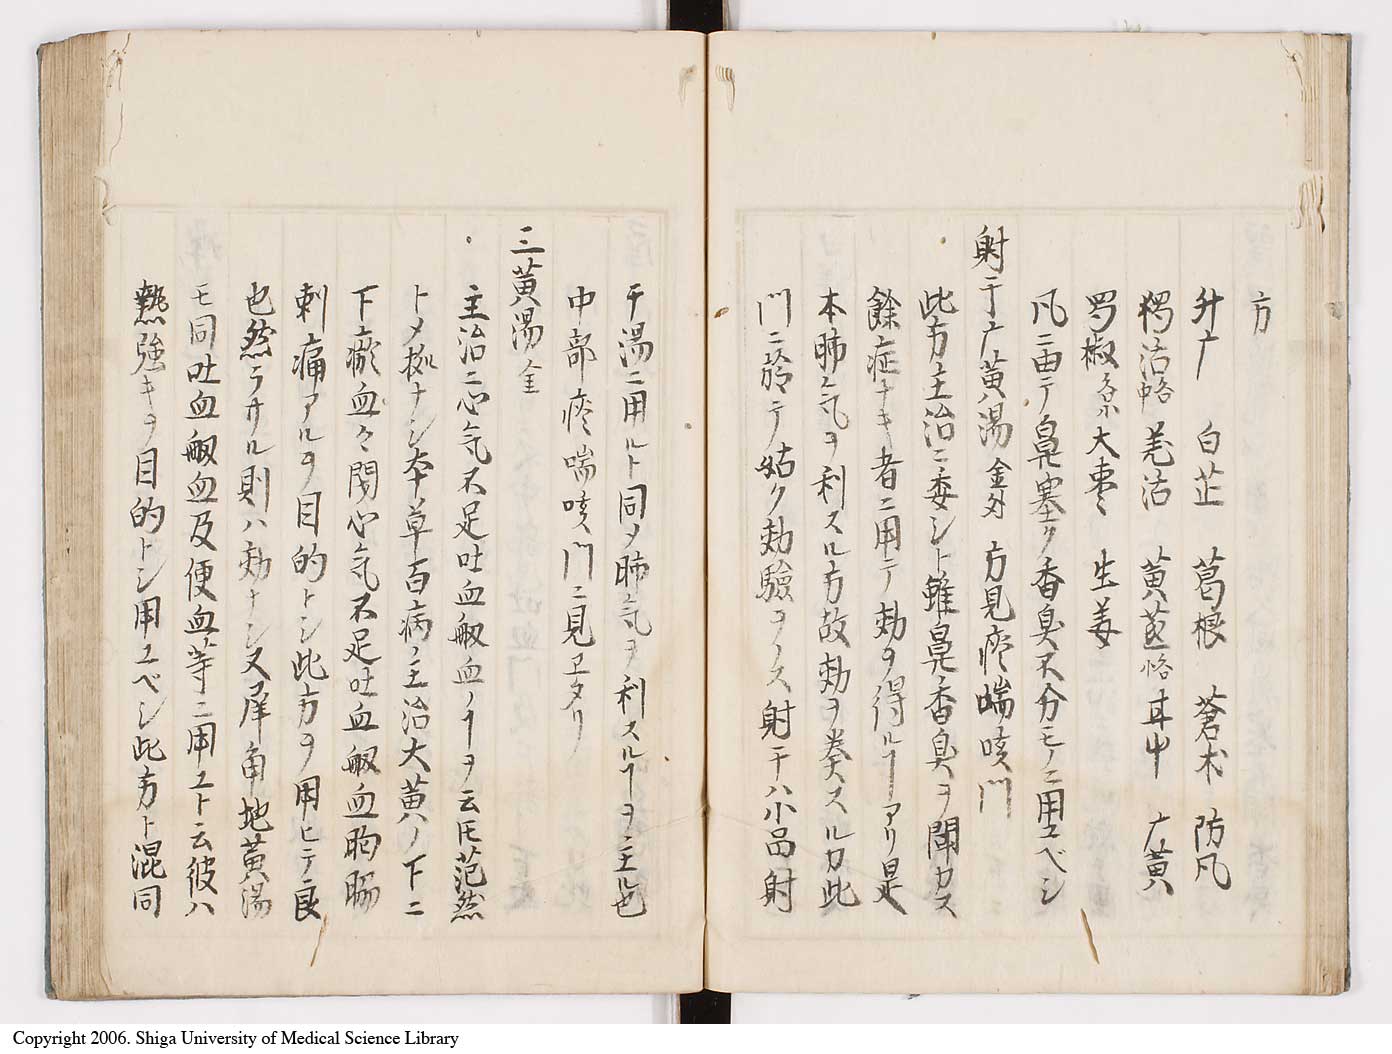 方
升广 白芷 葛根 蒼朮 防凡
獨活 羌活 黄芪 甘中 广黄
蜀椒 大棗 生姜
凡ニ由テ鼻塞ク香臭不分モノニ用ユベシ
射干广黄湯 金外 方見痰喘咳門
此方主治ニ委シト雖鼻香臭ヲ聞カズ
餘症ナキ者ニ用テ効ヲ得ルヿアリ是
本肺気ヲ利スル方故効ヲ奏スルカ此
門ニ於テ姑ク効驗ヲ 射干ハ小品射
干湯ニ用ルト同メ肺気ヲ利スルヿヲ主ル也
中部痰喘咳門ニ見ヱタリ
三黄湯 金
主治ニ心気不足吐血衂血ノヿヲ云圧茫然
トメ拠ナシ本草百病ノ主治大黄ノ下ニ
下瘀血々閉心気不足吐血衂血胸脇
刺痛アルヲ目的トシ此方ヲ用ヒテ良
也然ラサル則ハ効ナシ又犀角地黄湯
モ同吐血衂血及便血等ニ用ユト云彼ハ
熱強キヲ目的トシ用ユベシ此方ト混同
Copyright 2006. Shiga University of Medical Science Library